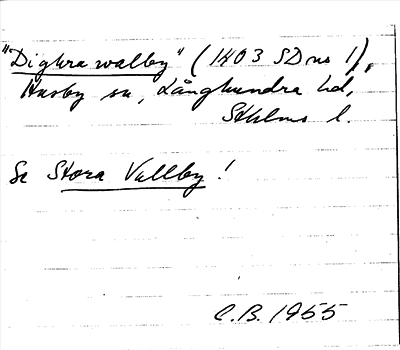 "Dighra walby" (1403 SD no 1),
Husby sn, Långhundra hd,
Sthlms l.
Se Stora Vallby!
C.B. 1955